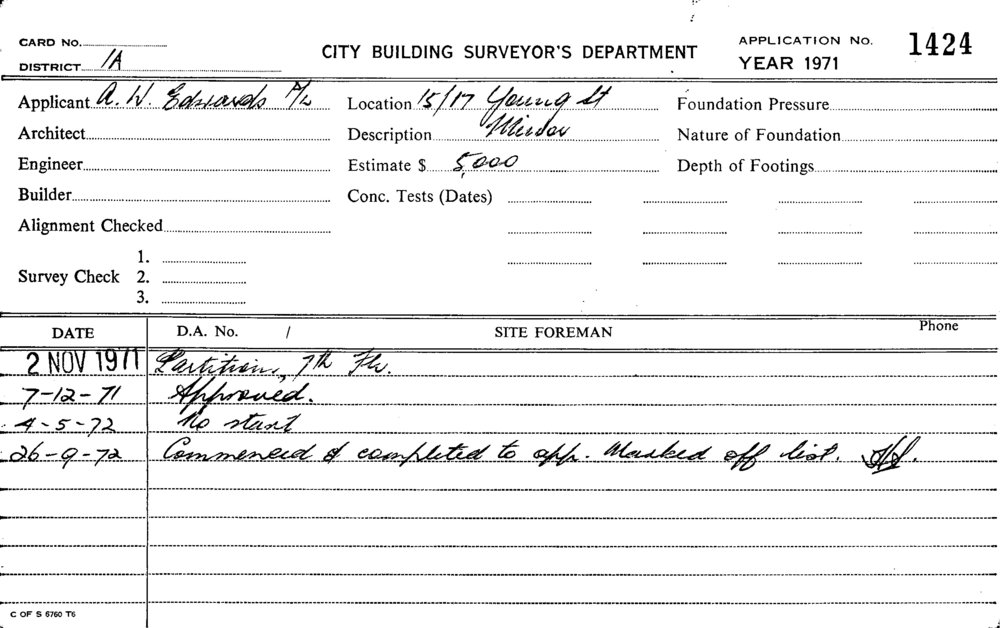 CARD No.
DISTRICT 1A
CITY BUILDING SURVEYOR'S DEPARTMENT
APPLICATION No. 1424
YEAR 1971
Applicant A. W. Edwards P/L Location 15/17 Young St Foundation Pressure
Architect Description Minor Nature of Foundation
Engineer Estimate $ 5,000 Depth of Footings
Builder Conc. Tests (Dates)
Alignment Checked
1.
Survey Check 2.
3.
DATE D.A. No. / SITE FOREMAN Phone
2 NOV 1971 Partition, 7th Flr.
7-12-71 Approved.
4-5-72 No start
26-9-72 Commenced & completed to app. Marked off list.
C OF S 6760 T6